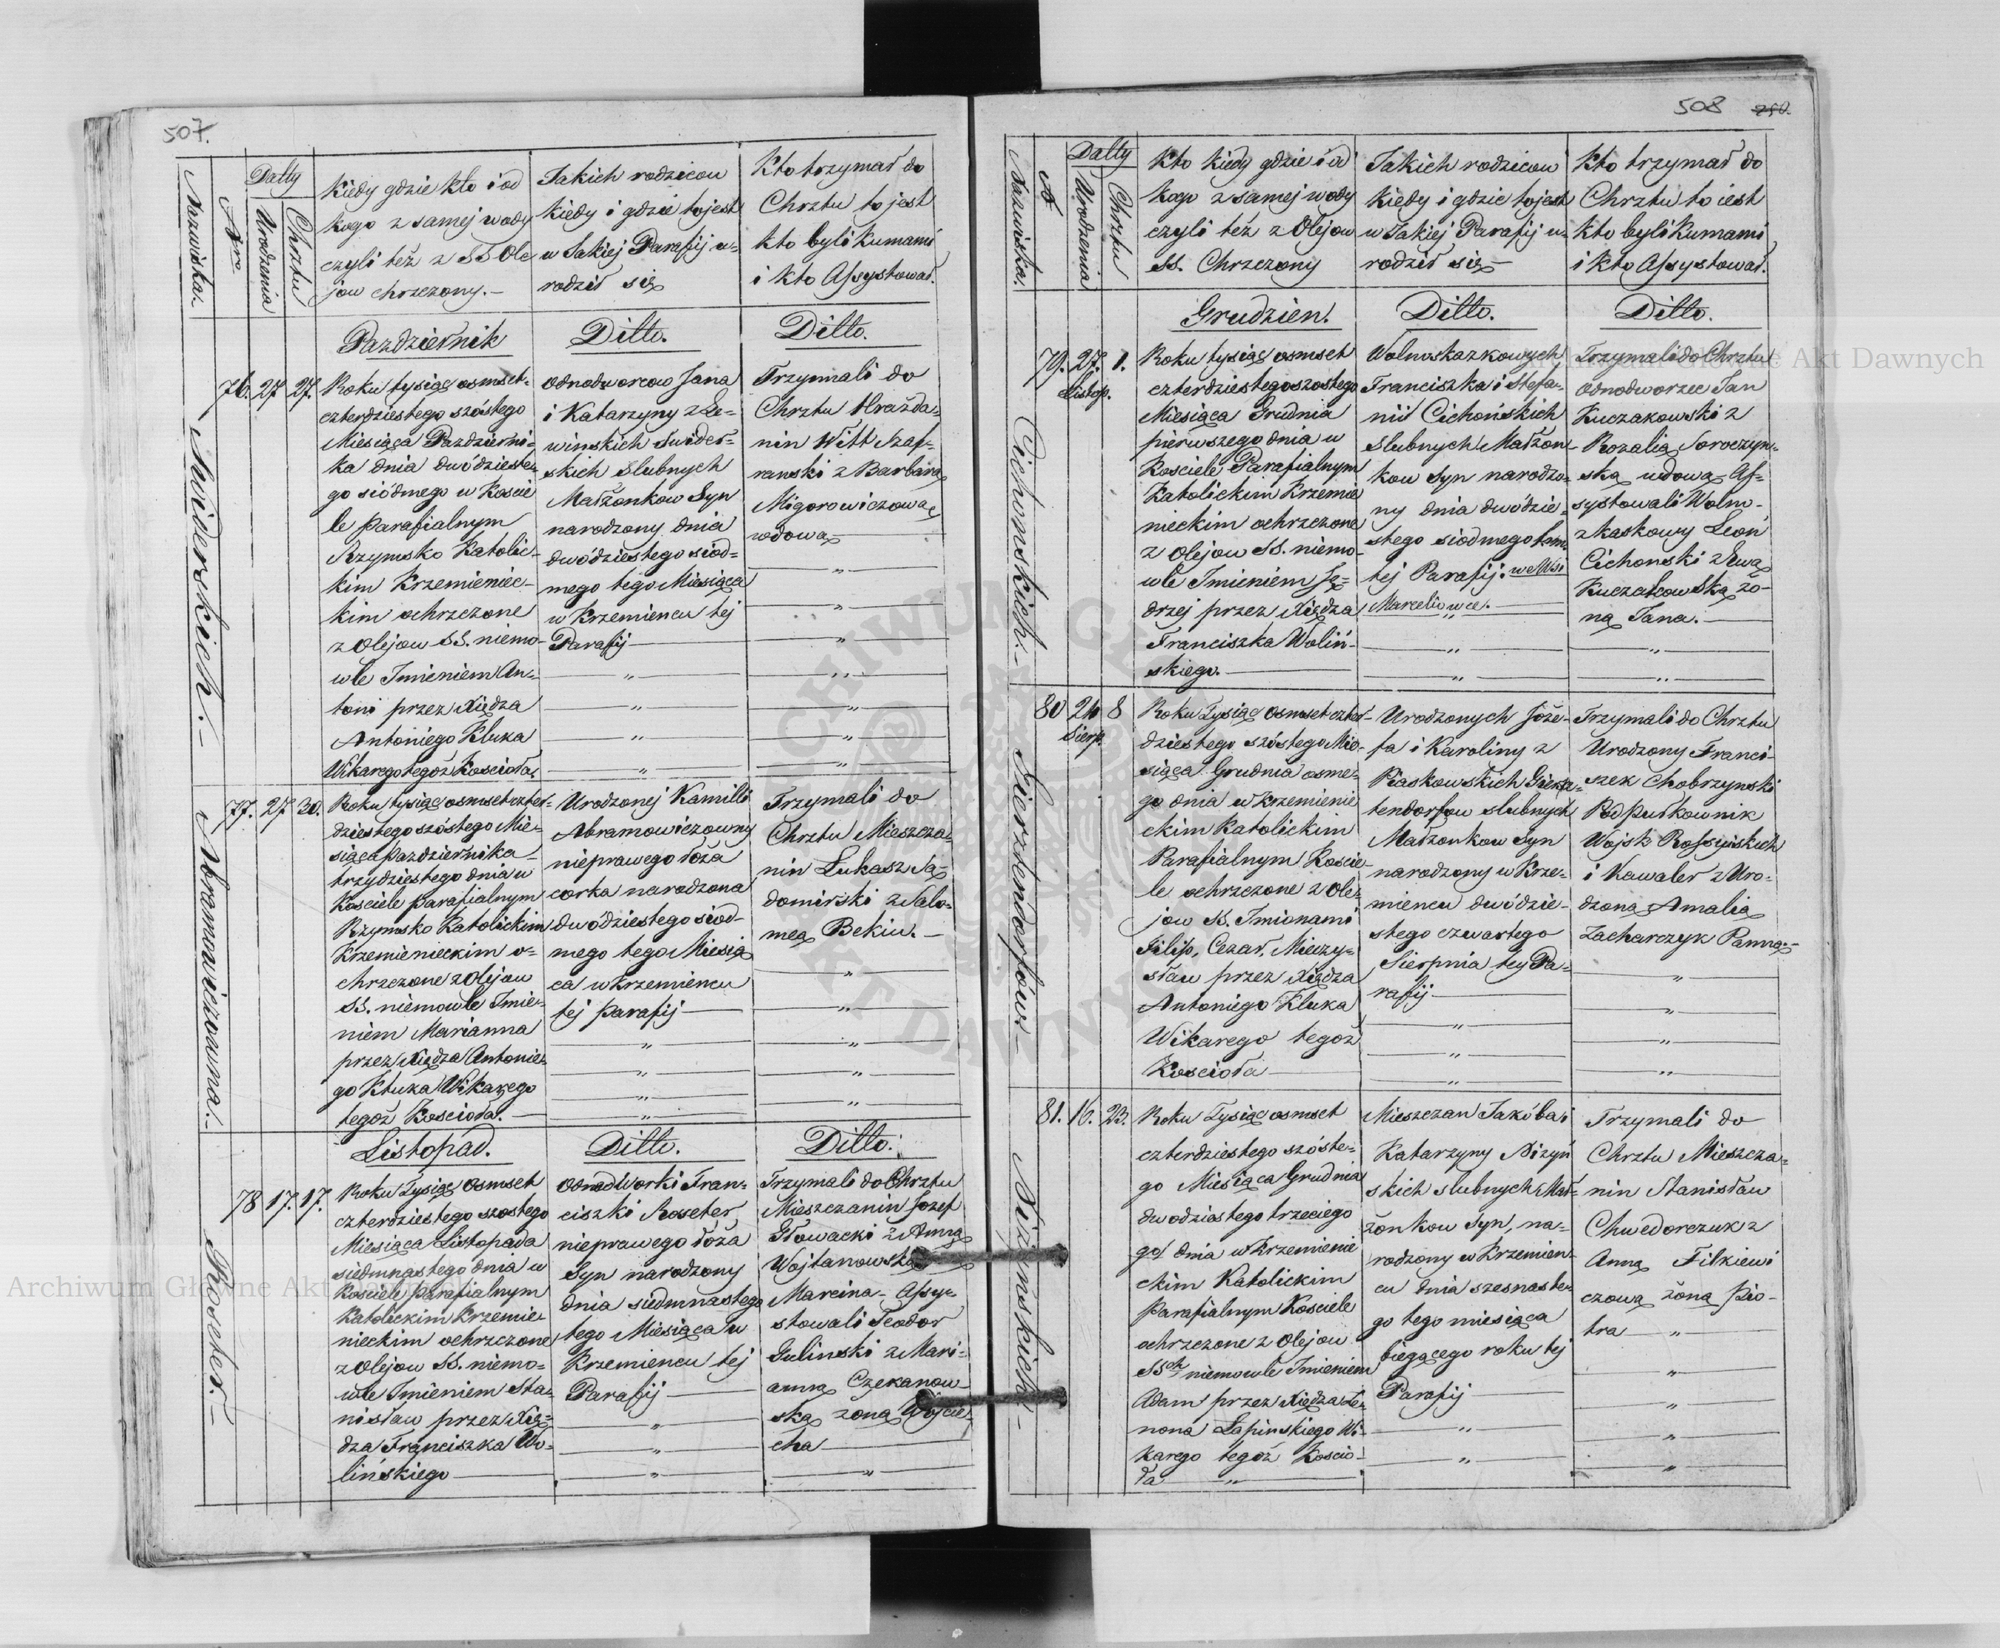 507.
Nazwiska.
Nro.
Datty
Urodzenia
Chrztu
Kiedy gdzie kto i od
kogo z samej wody
czyli też z SS Ole
jow chrzczony.—
Jakich rodzicow
kiedy i gdzie to jest
w Jakiej Parafij u-
rodził się
Kto trzymał do
Chrztu to jest
kto byli Kumami
i kto Assystował.
Październik
Ditto.
Ditto.
Swiderskich.—
76. 27 27.
Roku tysiąc osmset-
czterdziestego szóstego
Miesiąca Październi-
ka dnia dwódzieste-
go siódmego w Koscie
le Parafialnym
Rzymsko Katolic-
kim Krzemieniec-
kim ochrzczone
z Olejow SS. niemo-
wle Imieniem An-
toni przez Xiędza
Antoniego Kluka
Wikarego tegoż Koscioła.
odnodworcow Jana
i Katarzyny z Le-
winskich Swider-
skich slubnych
Małżonkow Syn
narodzony dnia
dwódziestego siód-
mego tego Miesiąca
w Krzemiencu tej
Parafij
Trzymali do
Chrztu Hrażda-
nin Witt Szaf-
ranski z Barbarą
Migorowiczową
wdową
Abramowiczowna.—
77. 27 30.
Roku tysiąc osmset czter-
dziestego szóstego Mie-
siąca Października
trzydziestego dnia w
Kosciele parafialnym
Rzymsko Katolickim
Krzemienieckim o-
chrzczone z Olejow
SS. niemowle Imie-
niem Marianna
przez Xiędza Antonie-
go Kluka Wikarego
tegoż Koscioła.
Urodzonej Kamilli
Abramowiczowny
nieprawego łoża
corka narodzona
dwódziestego siód-
mego tego Miesią
ca w Krzemiencu
tej parafij
Trzymali do
Chrztu Mieszcza-
nin Łukasz Sa
domirski z Salo-
meą Bekiu.—
Listopad.
Ditto.
Ditto.
Roseter.—
78 17. 17.
Roku Tysiąc osmset
czterdziestego szostego
Miesiąca Listopada
siedmnastego dnia w
Kosciele parafialnym
Katolickim Krzemie-
nieckim ochrzczone
z Olejow SS. niemo-
wle Imieniem Sta-
nisław przez Xię-
dza Franciszka Wo-
lińskiego
odnodworki Fran-
ciszki Roseter
nieprawego łoża
Syn narodzony
dnia siedmnastego
tego Miesiąca w
Krzemiencu tej
Parafij
Trzymali do Chrztu
Mieszczanin Jozef
Głowacki z Anną
Wojtanowską
Marcina- Assy-
stowali Teodor
Gulinski z Mari-
anną Czekanow-
ską żoną Wojcie-
cha
508 250.
Nazwiska.
N
Datty
Urodzenia
Chrztu
Kto kiedy gdzie i od
kogo z samej wody
czyli też z Olejow
SS. Chrzczony
Jakich rodzicow
kiedy i gdzie to jest
w Jakiej Parafij u-
rodził się—
Kto trzymał do
Chrztu to iest
kto byli Kumami
i kto Assystował.
Grudzien.
Ditto.
Ditto.
Cichonskich.—
79. 27. 1.
Listop.
Roku tysiąc osmset
czterdziestego szostego
Miesiąca Grudnia
pierwszego dnia w
Kosciele Parafialnym
Katolickim Krzemie
nieckim ochrzczone
z Olejow SS. niemo-
wle Imieniem Ję-
drzej przez Xiędza
Franciszka Woliń-
skiego.
Wolnoskazkowych
Franciszka i Stefa-
nii Cichońskich
Slubnych Małżon-
kow Syn narodzo-
ny dnia dwódzie-
stego siodmego
tej Parafij: we Wsi
Marceliowce.
Trzymali do Chrztu
Odnodworzec Jan
Kuczakowski z
Rozalią Soroczyn-
ską wdową- As-
systowali Wolno-
zkaskowy Leon
Cichonski z Ewą
Kuczakowską żo-
ną Jana.
Gierztendorfow.—
80 24 8
Sierp.
Roku Tysiąc osmset czter-
dziestego szóstego Mie-
siąca Grudnia osme-
go dnia w Krzemienie
ckim Katolickim
Parafialnym Koscie-
le ochrzczone z Ole-
jow SS. Imionami
Filip, Cezar, Mieczy-
sław przez Xiędza
Antoniego Kluka
Wikarego tegoż
Koscioła
Urodzonych Józe-
fa i Karoliny z
Piaskowskich Gierz-
tendorfow slubnych
Małżonkow Syn
narodzony w Krze-
miencu dwódzie-
stego czwartego
Sierpnia tej Pa-
rafij
Trzymali do Chrztu
Urodzony Franci-
szek Chobrzynski
Podpułkownik
Wojsk Rossyiskich
i Kawaler z Uro-
dzoną Amalią
Zacharczyk Panną.—
Nizinskich.—
81. 16. 23.
Roku Tysiąc osmset
czterdziestego szóste-
go Miesiąca Grudnia
dwodziestego trzeciego
go dnia w Krzemienie
ckim Katolickim
Parafialnym Kosciele
ochrzczone z Olejow
SSch niemowle Imieniem
Adam przez Xiędza Ze-
nona Łapinskiego Wi-
karego tegoż Koscio-
ła
Mieszczan Jakóba i
Katarzyny Nizyń
skich slubnych Mał-
żonkow Syn, na-
rodzony w Krzemien-
cu dnia szesnaste-
go tego miesiąca
biegącego roku tej
Parafij
Trzymali do
Chrztu Mieszcza-
nin Stanisław
Chwedorczuk z
Anną Filkiewi
czową żoną Pio-
tra
Archiwum Główne Akt Dawnych